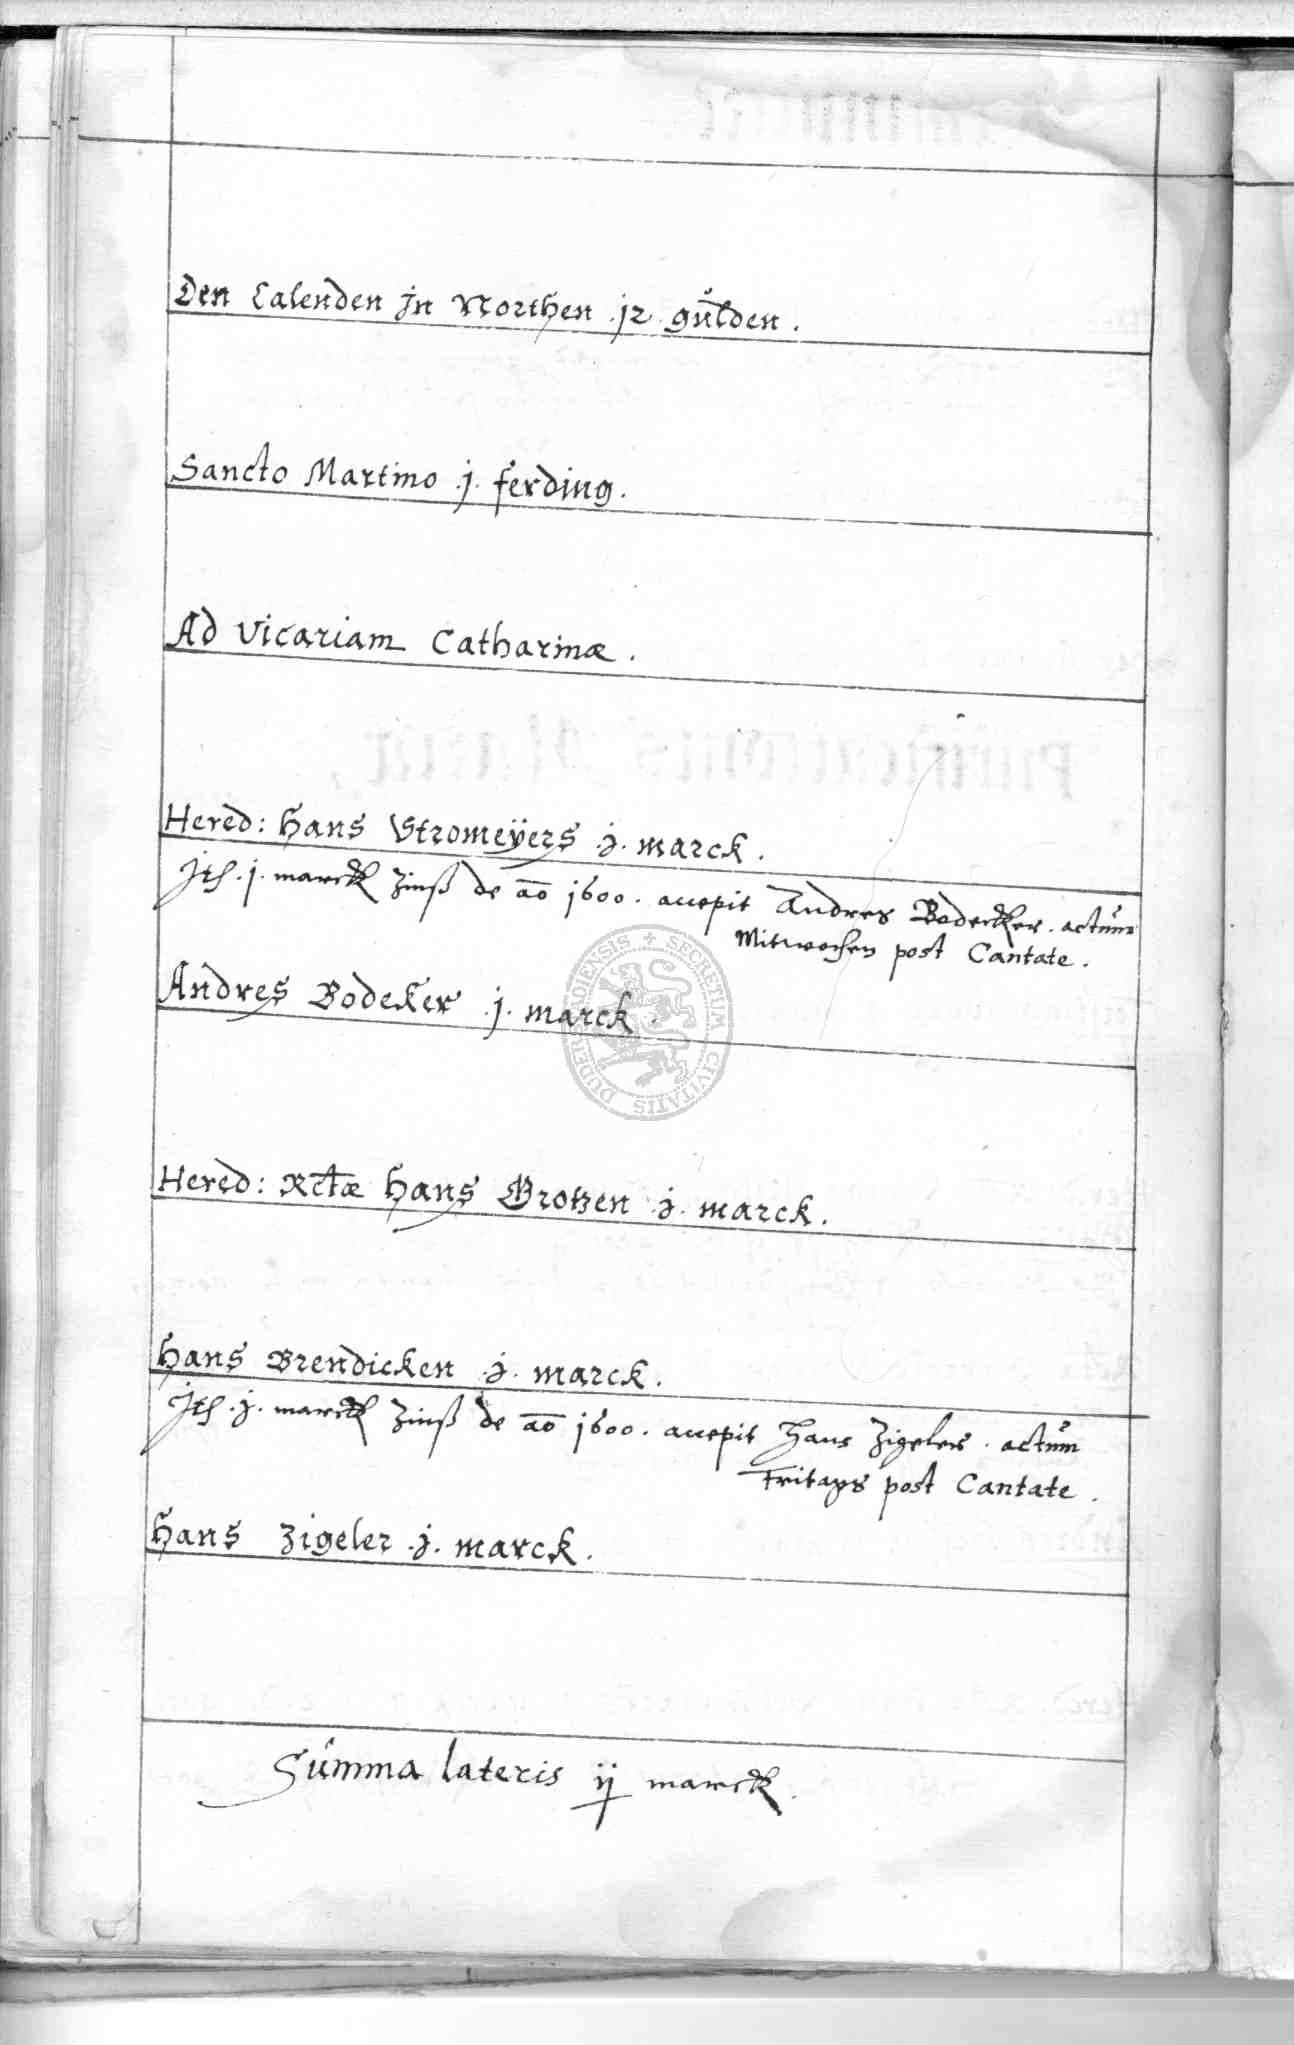 Den Calenden jn Northen .j2. gůlden.
Sancto Martino .j. ferding.
Ad Vicariam Catharinæ.
Hered: Hans Stromeÿers .j. marck.
.j. marck Zinß de ao 1600. accepit Andres Bodecker. actům
Mitwochen post Cantate.
Andres Bodeker .j. marck.
Hered: Rctæ Hans Brotzen .j. marck.
Hans Brendicken .j. marck.
.j. marck Zinß de ao 1600. accepit Hans Zigeler. actům
Fritags post Cantate.
Hans Zigeler .j. marck.
Sům̃a lateris ij marck.
SECRETUM CIVITATIS DUDERSTADIENSIS